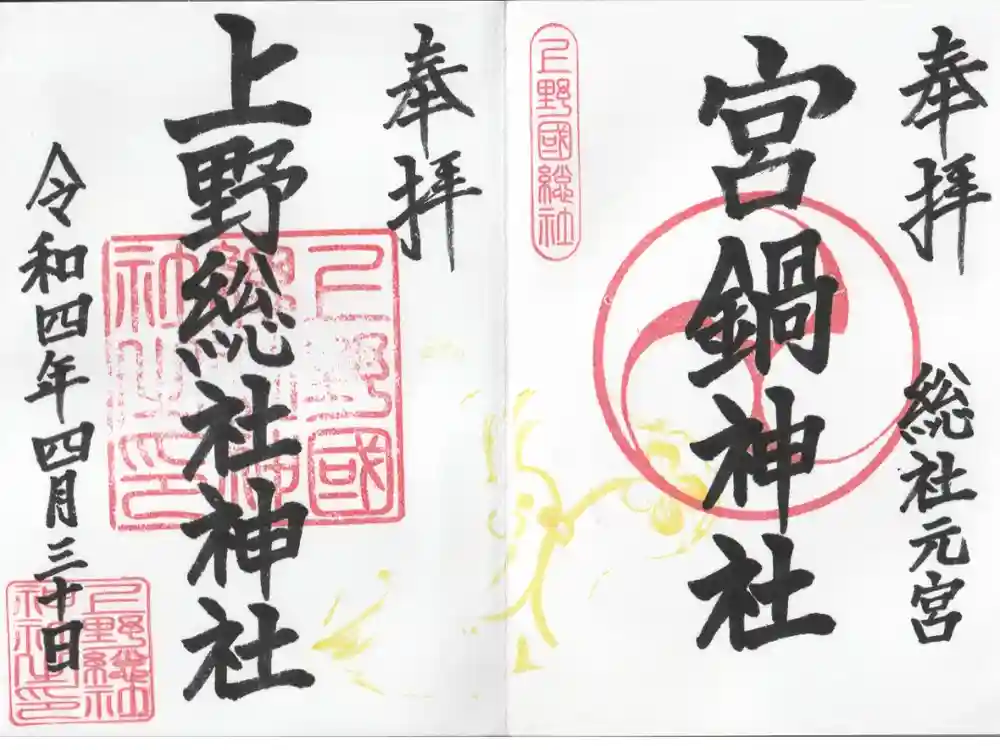 奉拝
総社元宮
宮鍋神社
上野國総社
奉拝
上野総社神社
上野國総社神社之印
令和四年四月三十日
上野総社神社之印